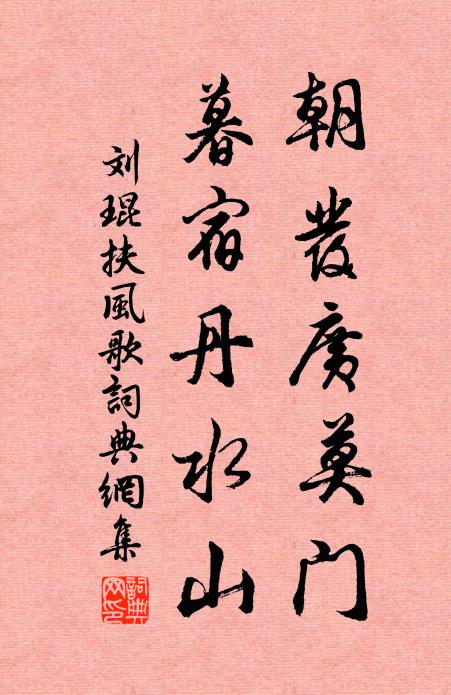 朝發廣莫門
暮宿丹水山
刘琨扶風歌詞典網集
詞典网印